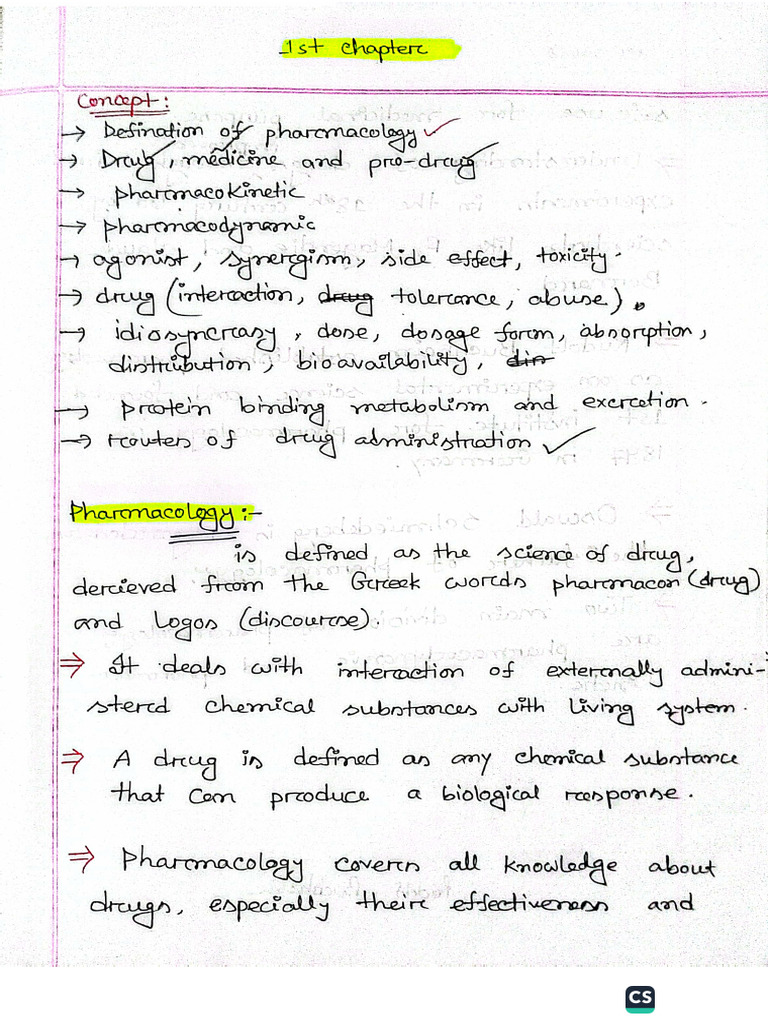 1st chapter
Concept:
→ Defination of pharmacology ✓
→ Drug, medicine and pro-drug
→ pharmacokinetic
→ pharmacodynamic
→ agonist, synergism, side effect, toxicity.
→ drug (interaction, drug tolerance, abuse).
→ idiosyncrasy, dose, dosage form, absorption,
distribution, bioavailability, din
→ protein binding metabolism and excretion.
→ routes of drug administration ✓
Pharmacology:-
is defined as the science of drug,
derieved from the Greek words pharmacon (drug)
and Logos (discourse).
⇒ It deals with interaction of externally admini-
stered chemical substances with living system.
⇒ A drug is defined as any chemical substance
that can produce a biological response.
⇒ Pharmacology covers all knowledge about
drugs, especially their effectiveness and
CS